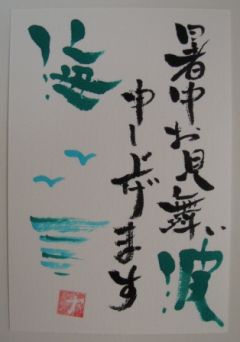 暑中お見舞い
申し上げます
波
海